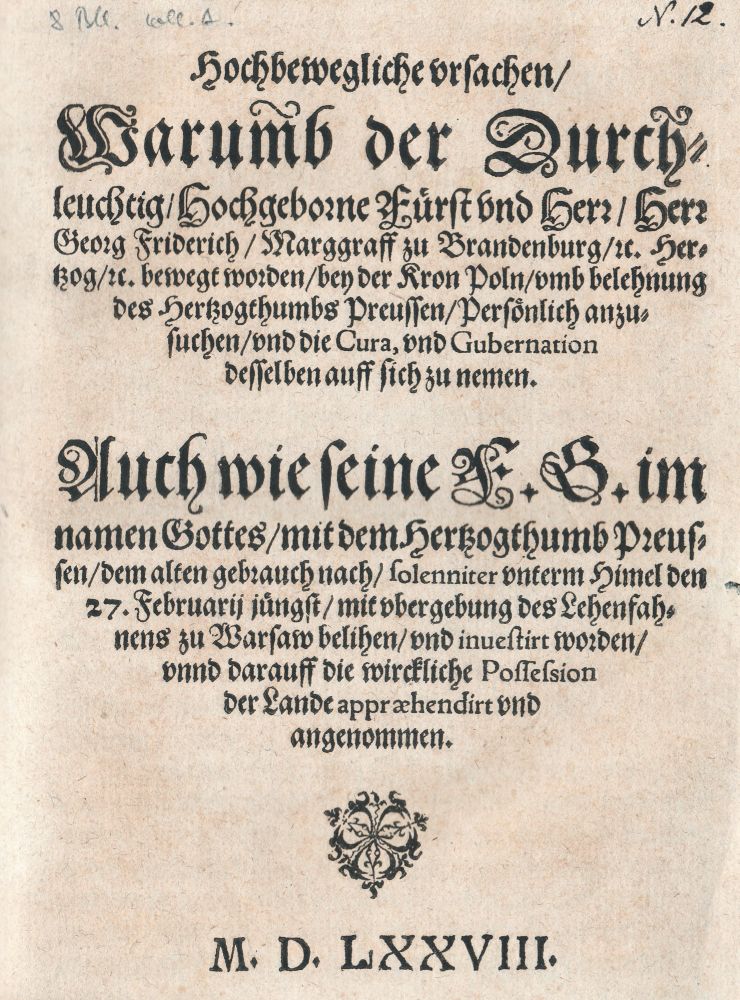 8 Bll. coll. A.
N. 12.
Hochbewegliche vrsachen/
Warum̃b der Durch-
leuchtig/Hochgeborne Fürst vnd Herr/ Herr
Georg Friderich/Marggraff zu Brandenburg/ꝛc. Her-
tzog/ꝛc. bewegt worden/bey der Kron Poln/vmb belehnung
des Hertzogthumbs Preussen/Persönlich anzu-
suchen/vnd die Cura, vnd Gubernation
desselben auff sich zu nemen.
Auch wie seine F. G. im
namen Gottes/mit dem Hertzogthumb Preus-
sen/dem alten gebrauch nach/ solenniter vnterm Himel den
27. Februarij jüngst/mit vbergebung des Lehenfah-
nens zu Warsaw belihen/vnd inuestirt worden/
vnnd darauff die wirckliche Possession
der Lande appræhendirt vnd
angenommen.
M. D. LXXVIII.